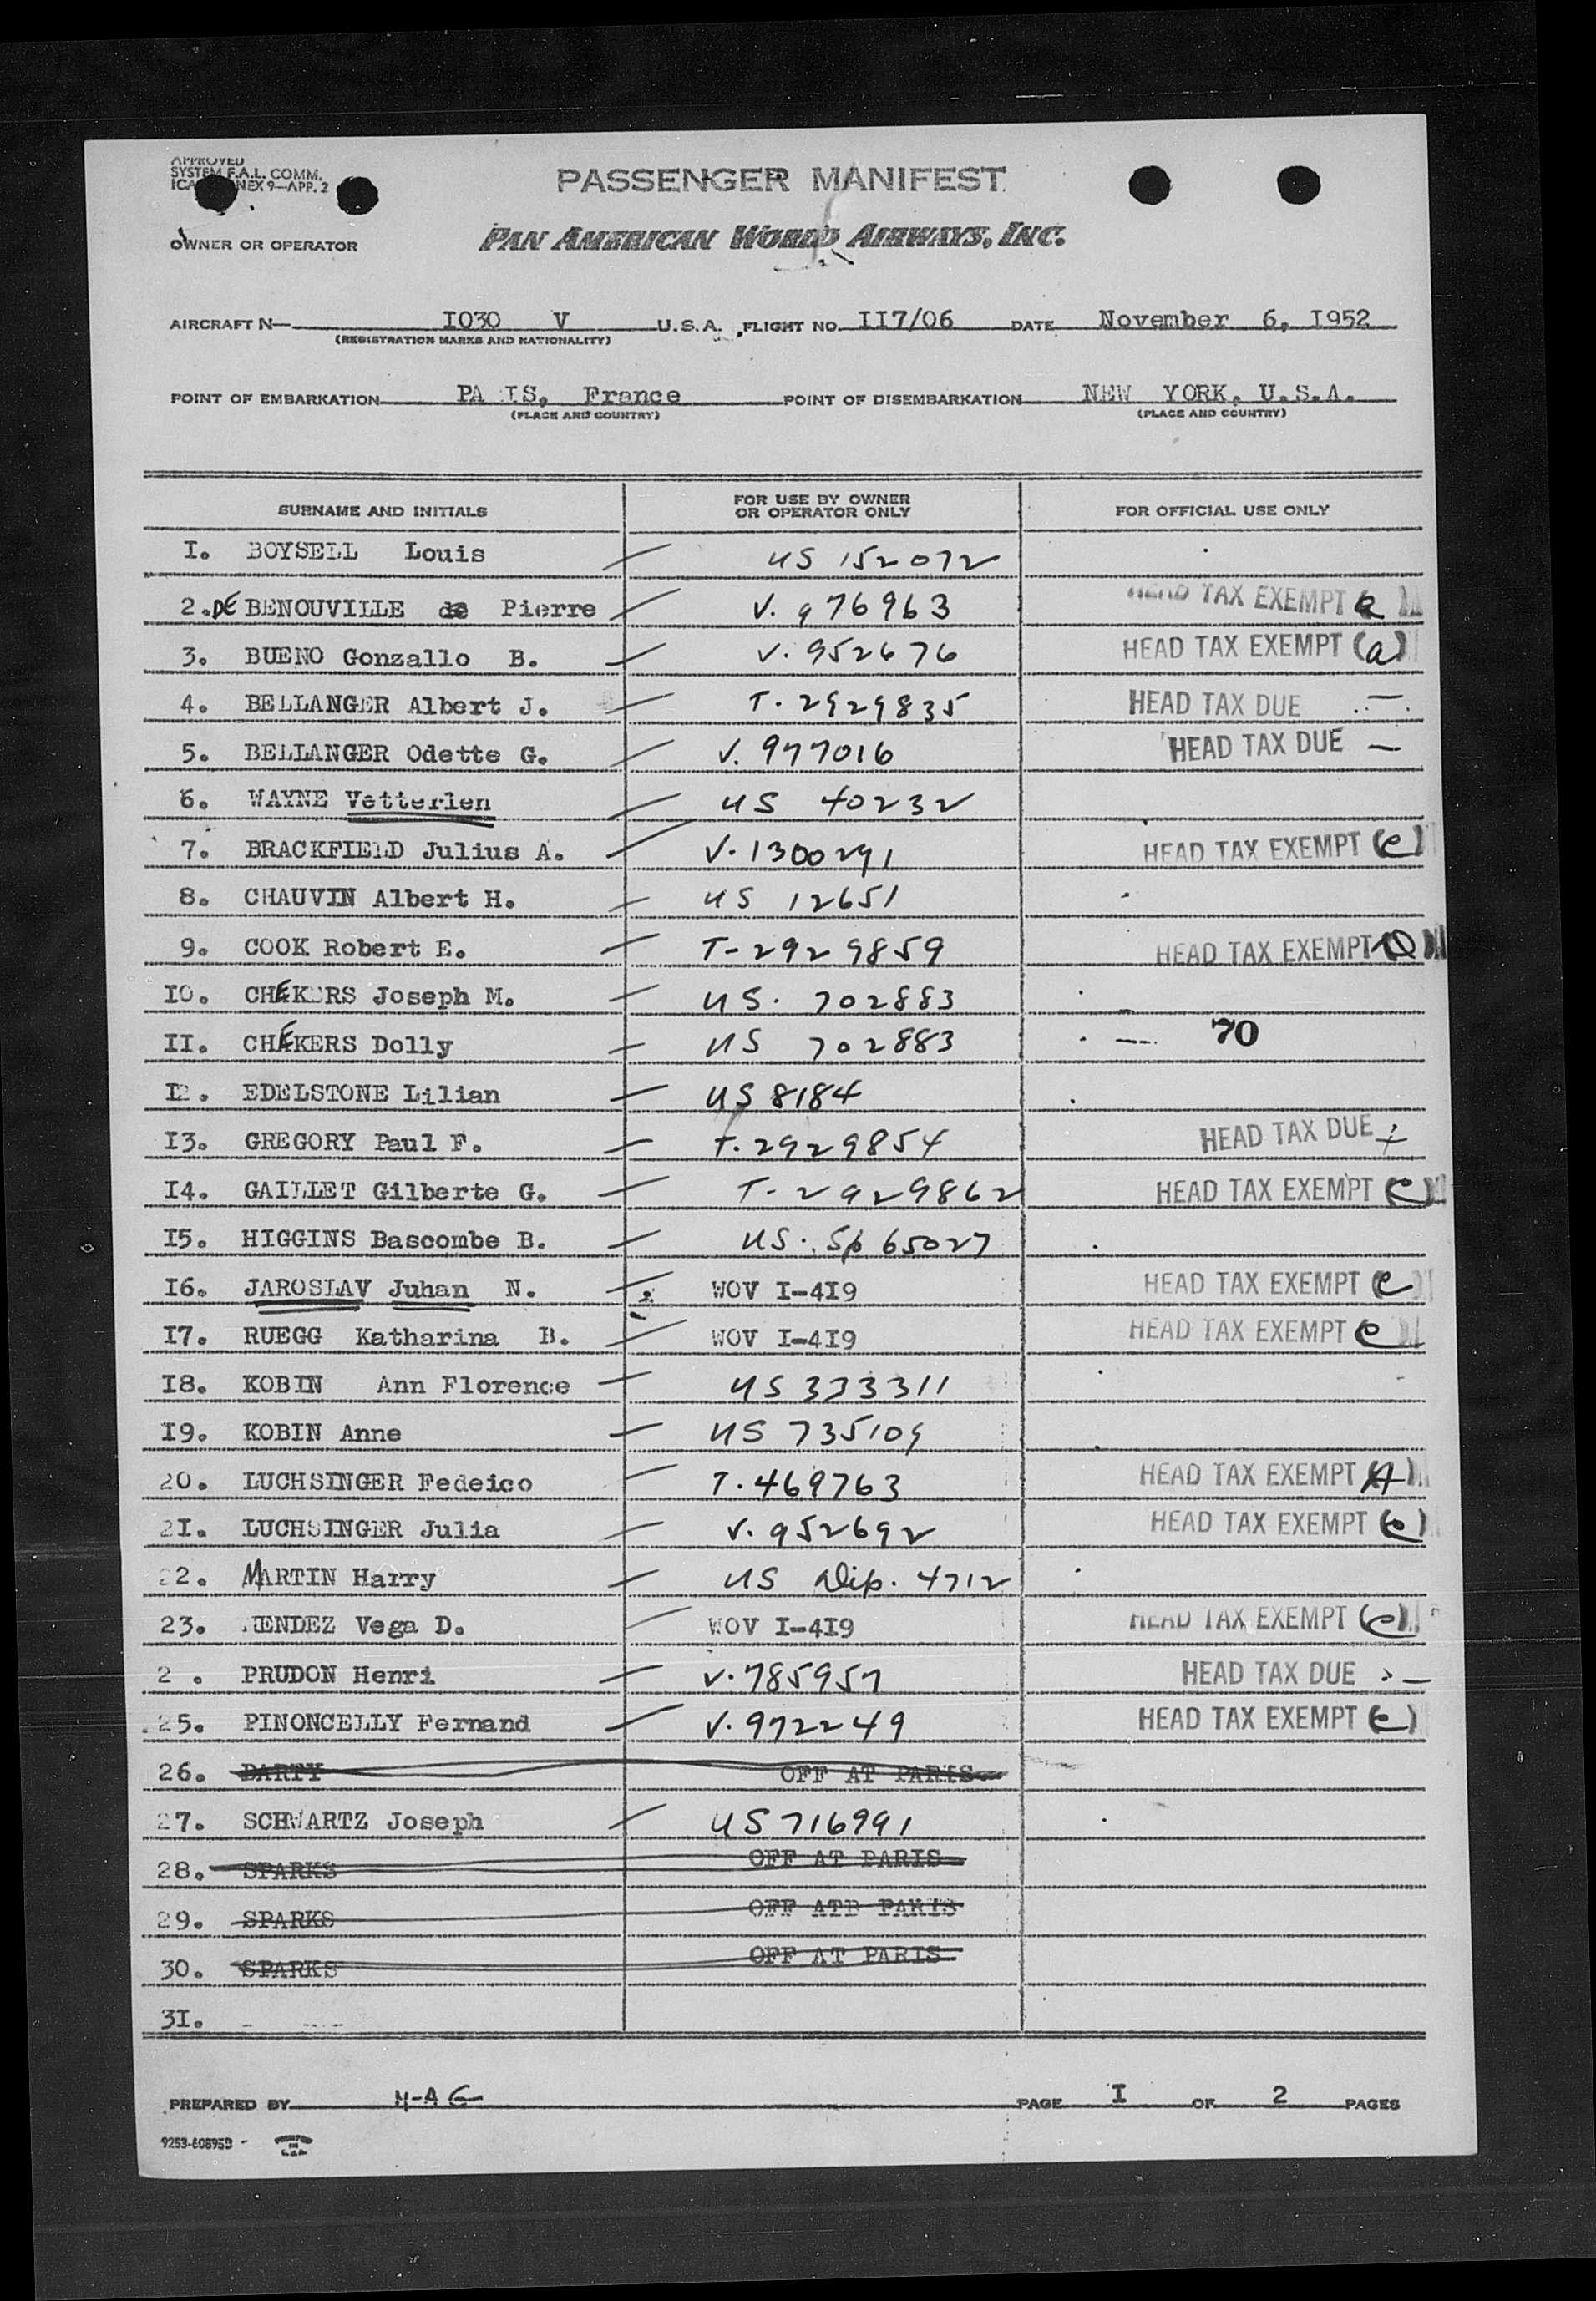 APPROVED
SYSTEM F.A.L. COMM.
ICA NEX 9—APP. 2
PASSENGER MANIFEST
OWNER OR OPERATOR
PAN AMERICAN WORLD AIRWAYS, INC.
AIRCRAFT N— I030 V U.S.A. FLIGHT NO. II7/06 DATE November 6, I952
(REGISTRATION MARKS AND NATIONALITY)
POINT OF EMBARKATION PA IS, France POINT OF DISEMBARKATION NEW YORK, U.S.A.
(PLACE AND COUNTRY) (PLACE AND COUNTRY)
SURNAME AND INITIALS FOR USE BY OWNER OR OPERATOR ONLY FOR OFFICIAL USE ONLY
I. BOYSELL Louis — US 152072
2. DE BENOUVILLE de Pierre — V. 976963 HEAD TAX EXEMPT a
3. BUENO Gonzallo B. — V. 952676 HEAD TAX EXEMPT (a)
4. BELLANGER Albert J. — T. 2929835 HEAD TAX DUE —
5. BELLANGER Odette G. — V. 977016 HEAD TAX DUE —
6. WAYNE Vetterlen — US 40232
7. BRACKFIELD Julius A. — V. 1300291 HEAD TAX EXEMPT (e)
8. CHAUVIN Albert H. — US 12651
9. COOK Robert E. — T-2929859 HEAD TAX EXEMPT
I0. CHEKERS Joseph M. — US. 702883
II. CHEKERS Dolly — US 702883 — 70
I2. EDELSTONE Lilian — US 8184
I3. GREGORY Paul F. — T. 2929854 HEAD TAX DUE
I4. GAILLET Gilberte G. — T-2929862 HEAD TAX EXEMPT (e)
I5. HIGGINS Bascombe B. — US. Sp 65027
I6. JAROSLAV Juhan N. — WOV I-4I9 HEAD TAX EXEMPT e
I7. RUEGG Katharina B. — WOV I-4I9 HEAD TAX EXEMPT e
I8. KOBIN Ann Florence — US 333311
I9. KOBIN Anne — US 735109
20. LUCHSINGER Fedeico — T. 469763 HEAD TAX EXEMPT (A)
2I. LUCHSINGER Julia — V. 952692 HEAD TAX EXEMPT (e)
22. MARTIN Harry — US Dip. 4712
23. MENDEZ Vega D. — WOV I-4I9 HEAD TAX EXEMPT (e)
2 . PRUDON Henri — V. 785957 HEAD TAX DUE —
25. PINONCELLY Fernand — V. 972249 HEAD TAX EXEMPT (e)
26. DARTY OFF AT PARIS
27. SCHWARTZ Joseph — US 716991
28. SPARKS OFF AT PARIS
29. SPARKS OFF ATP PARIS
30. SPARKS OFF AT PARIS
3I.
PREPARED BY N-AG PAGE I OF 2 PAGES
9253-60895B - PRINTED IN U.S.A.